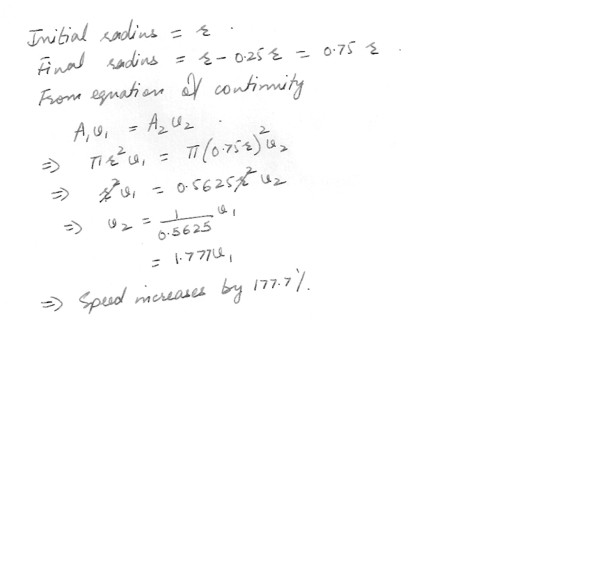 Initial radius = r.
Final radius = r - 0.25 r = 0.75 r.
From equation of continuity
A₁v₁ = A₂v₂.
⇒ πr²v₁ = π(0.75r)²v₂
⇒ r²v₁ = 0.5625r²v₂
⇒ v₂ = 1/0.5625 v₁
= 1.777v₁
⇒ Speed increases by 177.7%.